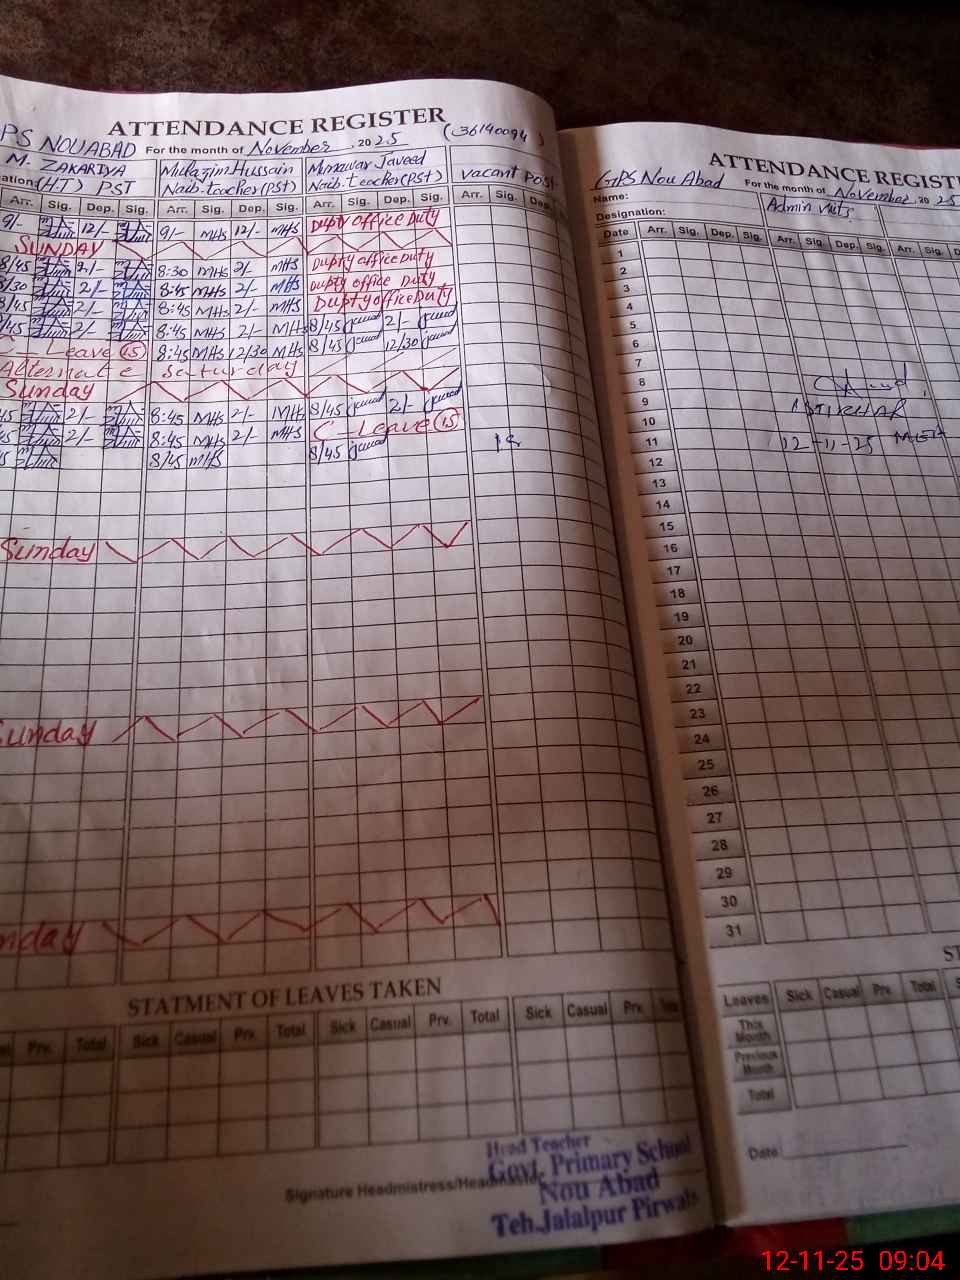 ATTENDANCE REGISTER
PS NOUABAD For the month of November 2025 (36140094)
M. ZAKARIYA Mulazim Hussain Munawar Javeed
(H.T) PST Naib.teacher(PST) Naib.teacher(PST) vacant post
Arr. Sig. Dep. Sig. Arr. Sig. Dep. Sig. Arr. Sig. Dep. Sig. Arr. Sig. Dep.
9/- 12/- 9/- MHS 12/- MHS Dupty office Duty
SUNDAY
8/45 2/- 8:30 MHS 2/- MHS Dupty office Duty
8/30 2/- 8:45 MHS 2/- MHS Dupty office Duty
8/45 2/- 8:45 MHS 2/- MHS Dupty office Duty
8/45 2/- 8:45 MHS 2/- MHS 8/45 2/-
C - Leave 15 8:45 MHS 12/30 MHS 8/45 12/30
Alternate Saturday
Sunday
45 2/- 8:45 MHS 2/- MHS 8/45 2/-
45 2/- 8:45 MHS 2/- MHS C - Leave 15
8/45 MHS 8/45
Sunday
Sunday
nday
STATMENT OF LEAVES TAKEN
Prv. Total Sick Casual Prv. Total Sick Casual Prv. Total Sick Casual Prv.
Signature Headmistress/Headmaster
Head Teacher
Govt. Primary School
Nou Abad
Teh.Jalalpur Pirwala
ATTENDANCE REGIST
GPS Nou Abad For the month of November 2025
Name: Admin visits
Designation:
Date Arr. Sig. Dep. Sig. Arr. Sig. Dep. Sig. Arr. Sig.
1
2
3
4
5
6
7
8
9
10
11
12-11-25
12
13
14
15
16
17
18
19
20
21
22
23
24
25
26
27
28
29
30
31
ST
Leaves Sick Casual Prv. Total
This Month
Previous Month
Total
Date
12-11-25 09:04